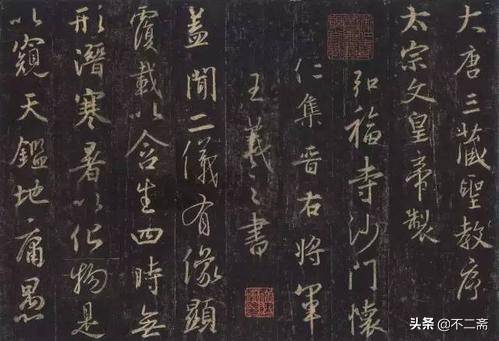 大唐三藏聖教序
太宗文皇帝製
弘福寺沙門懷
仁集晉右將軍
王羲之書
蓋聞二儀有像顯
覆載以含生四時無
形潛寒暑以化物是
以窺天鑑地庸愚
头条 @不二斋